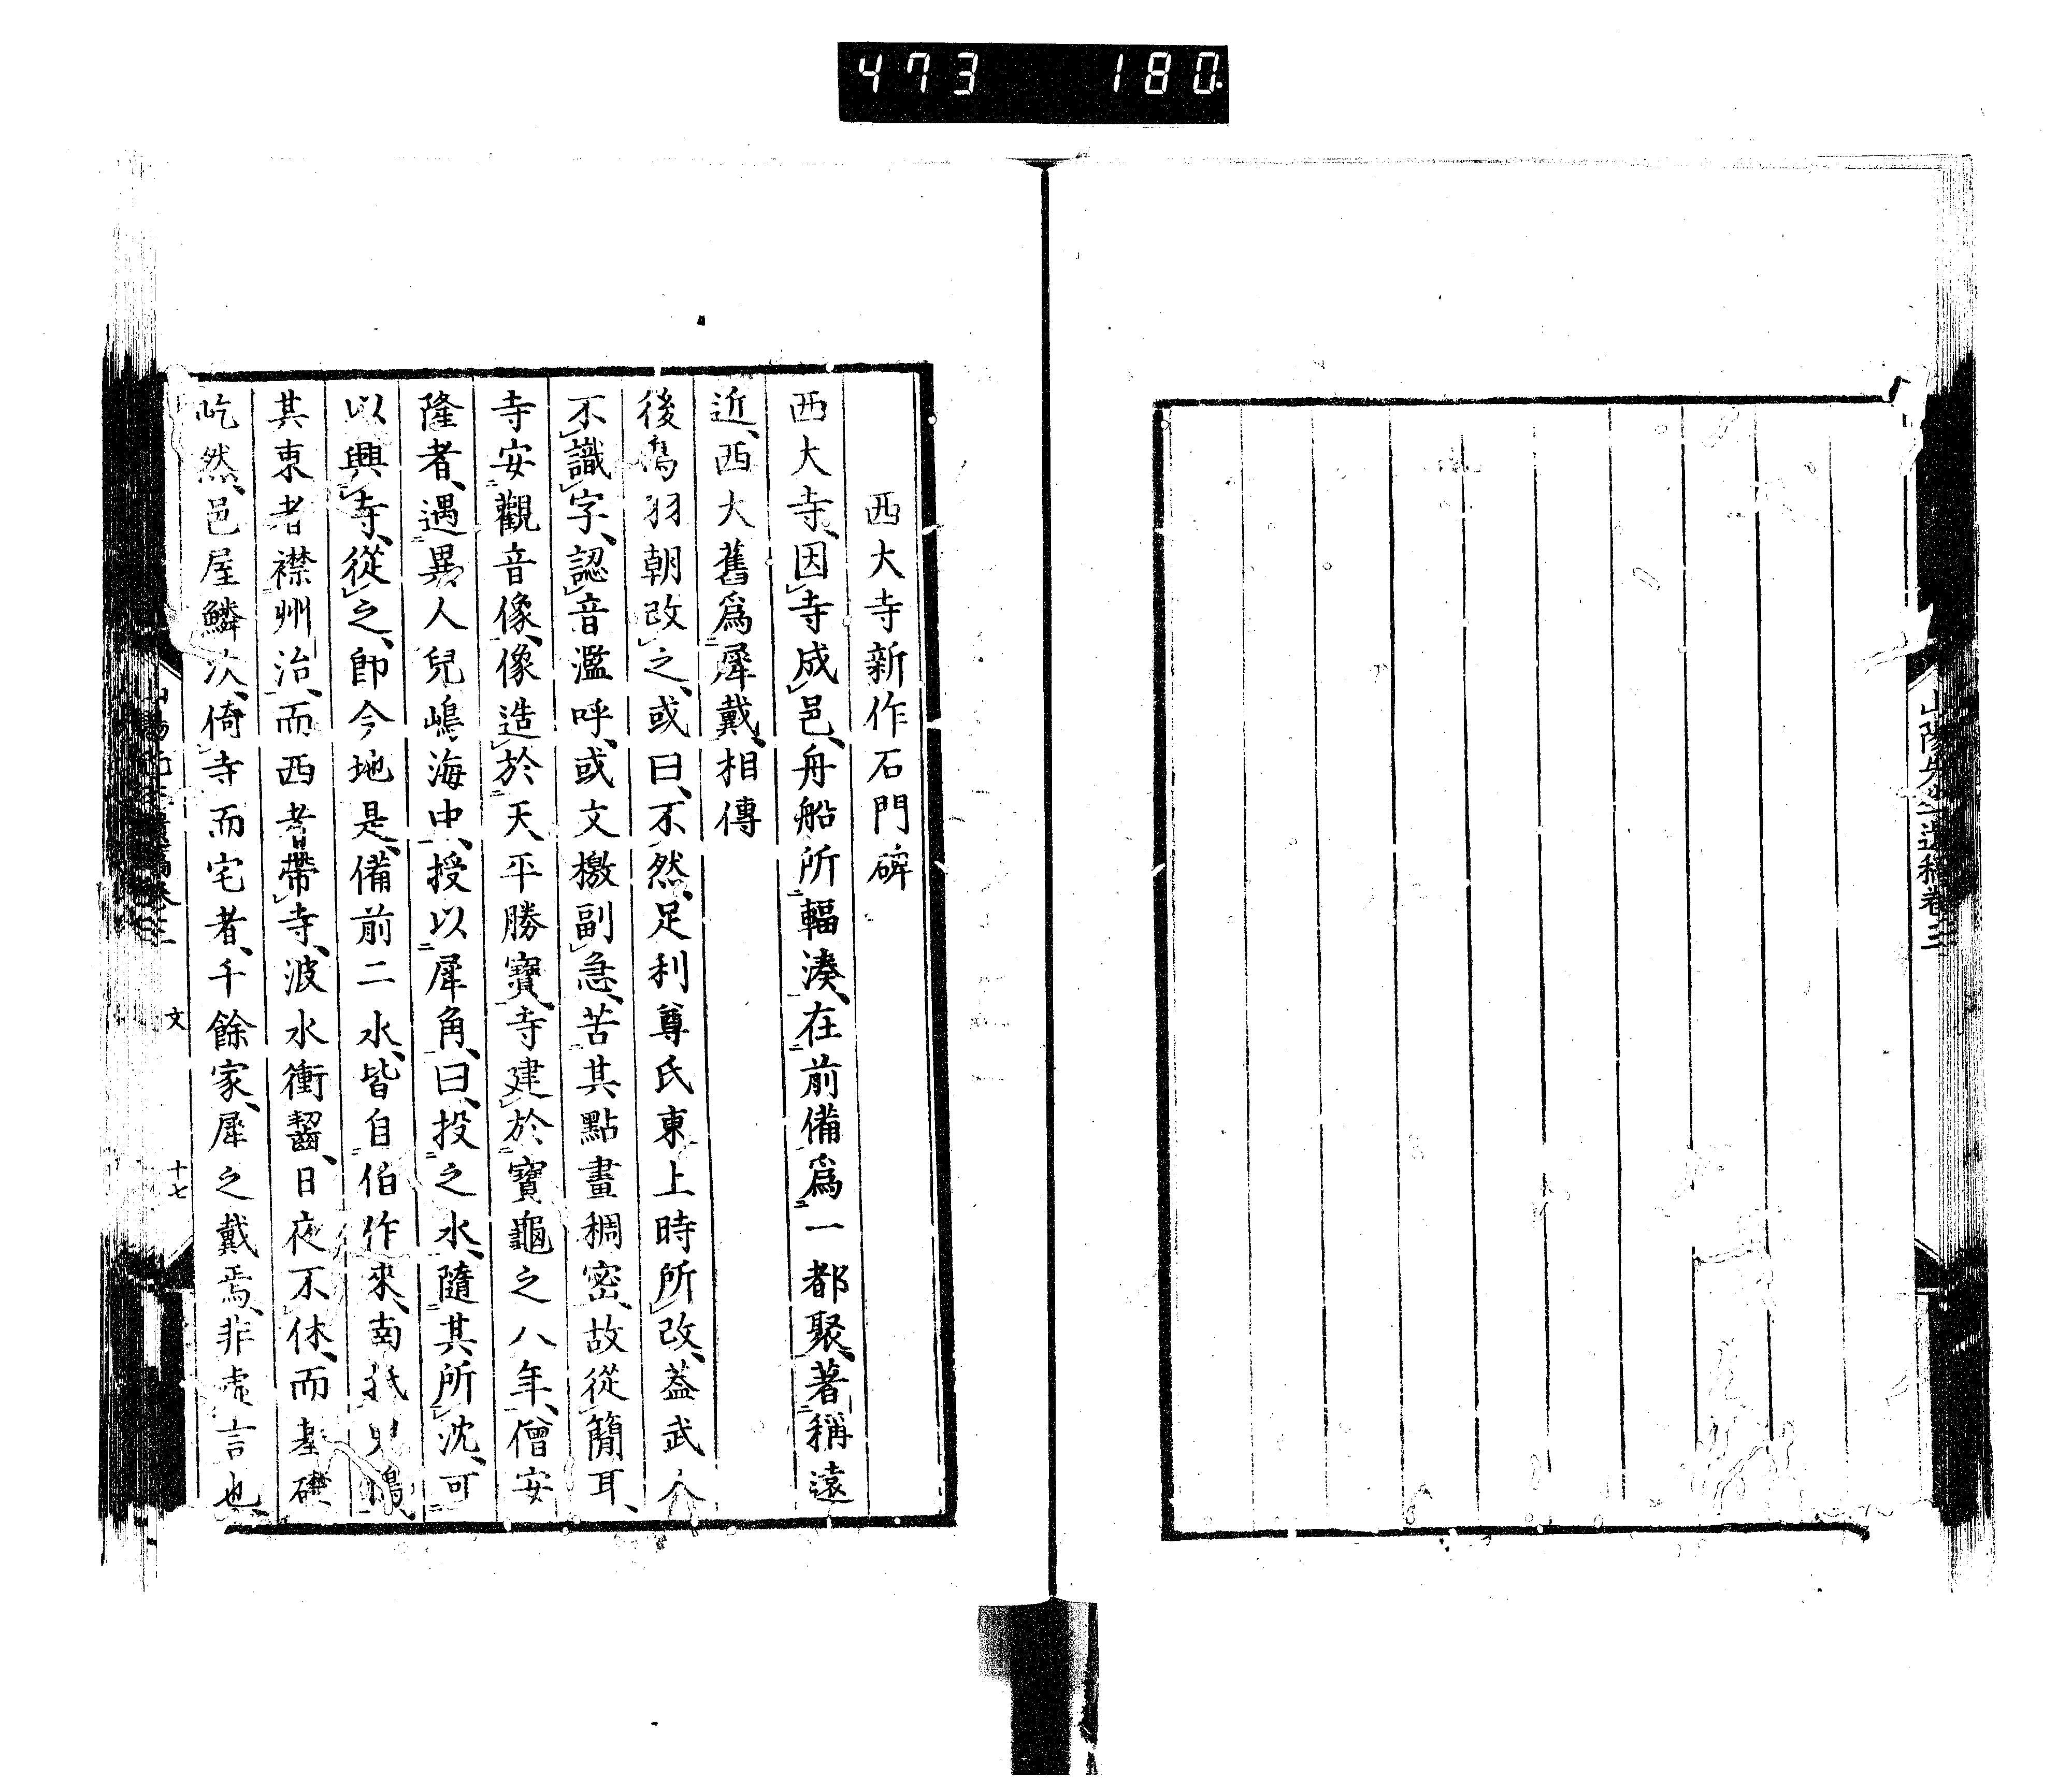 473 180
山陽先生遺稿卷三
西大寺新作石門碑
西大寺、因寺成邑、舟船所輻湊、在前備爲一都聚、著稱遠
近、西大舊爲犀戴、相傳
後鳥羽朝改之、或曰、不然、足利尊氏東上時所改、葢武人
不識字、認音濫呼、或文檄副急、苦其點畫稠密、故從簡耳、
寺安觀音像、像造於天平勝寶、寺建於寶龜之八年、僧安
隆者、遇異人兒嶋海中、授以犀角、曰、投之水、隨其所沈、可
以興寺、從之、卽今地是、備前二水、皆自伯作來、南抵兒嶋、
其東者襟州治、而西者帶寺、波水衝齧、日夜不休、而基礎
屹然、邑屋鱗次、倚寺而宅者、千餘家、犀之戴焉、非虛言也、
山陽先生遺稿卷三 文 十七